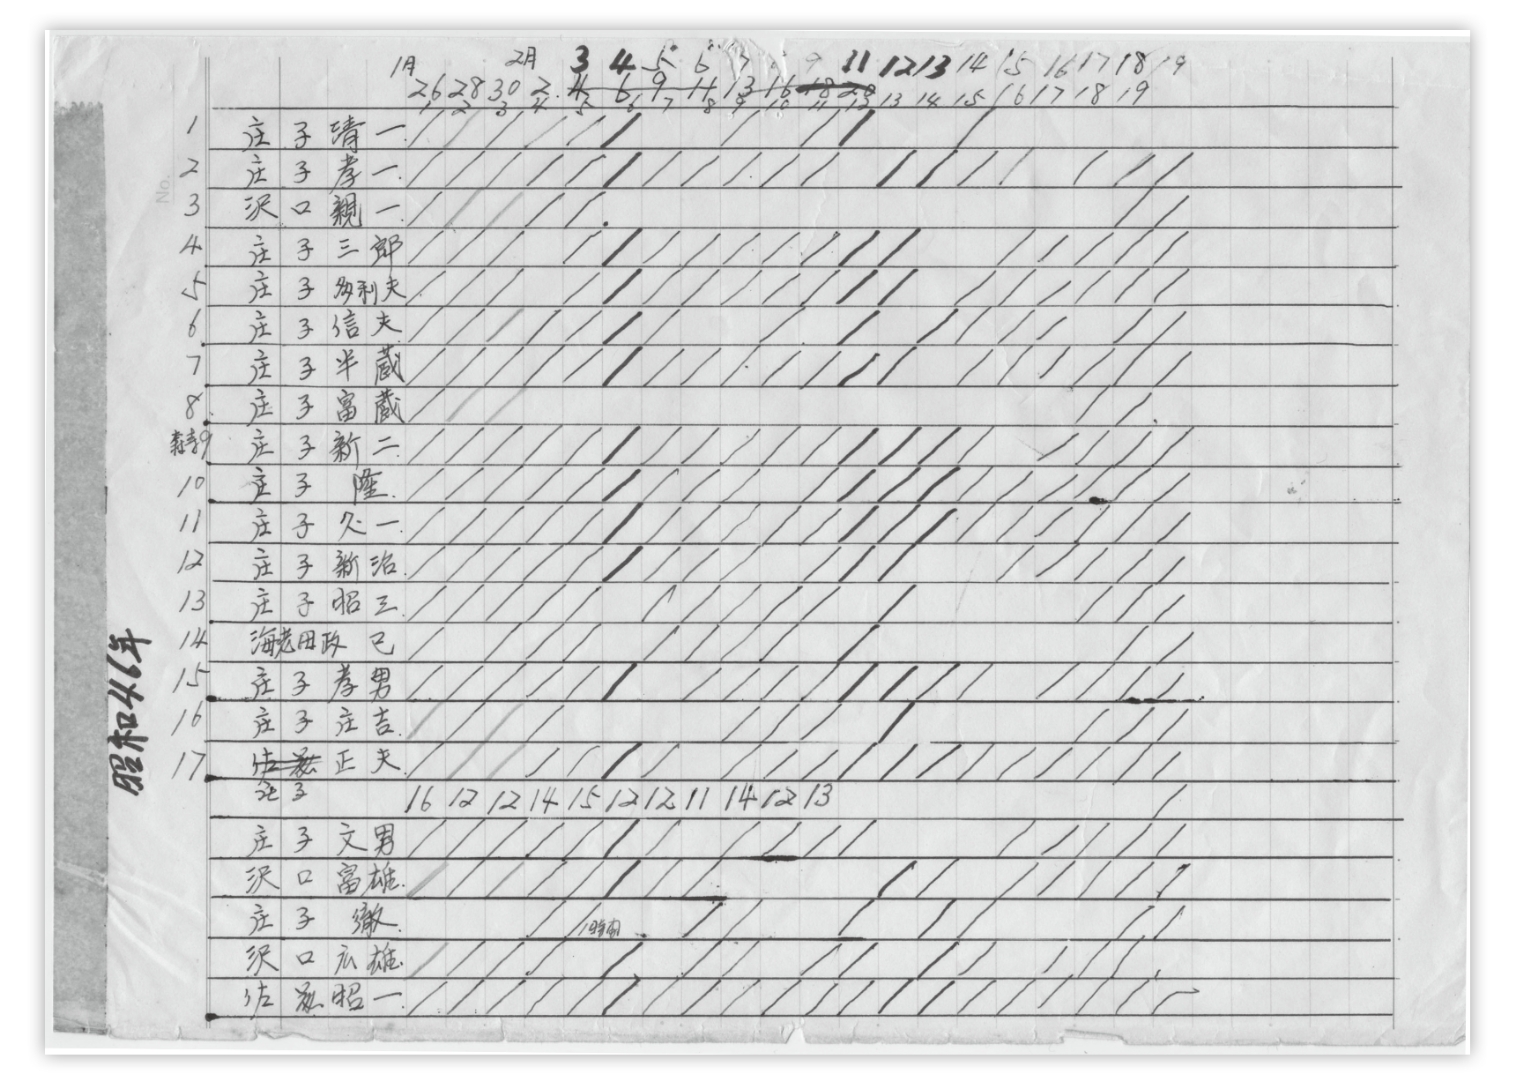 1月 2月 3 4 5 6 7 8 9 11 12 13 14 15 16 17 18 19
26 28 30 2 4 6 9 11 13 16 18 20
1 2 3 4 5 6 7 8 9 10 11 12 13 14 15 16 17 18 19
1 庄子清一
2 庄子孝一
No.
3 沢口親一
4 庄子三郎
5 庄子多利夫
6 庄子信夫
7 庄子半蔵
8 庄子富蔵
9 庄子新二
10 庄子隆
11 庄子久一
12 庄子新治
13 庄子昭三
14 海老田政己
15 庄子孝男
16 庄子庄吉
17 佐藤正夫
庄子
16 12 12 14 15 12 12 11 14 12 13
庄子文男
沢口富雄
庄子徹
1時間
沢口広雄
佐藤昭一
昭和46年